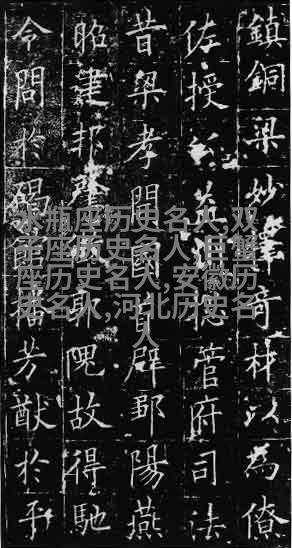 鎮銅梁妙擇奇材以為僚
佐授公益州總管府司法
昔梁孝開國首辟鄒陽燕
昭建邦肇徵郭隗故得馳
令問於碣館播芳猷於平
水瓶座历史名人,双
子座历史名人,巨蟹
座历史名人,安徽历
史名人,河北历史名
人